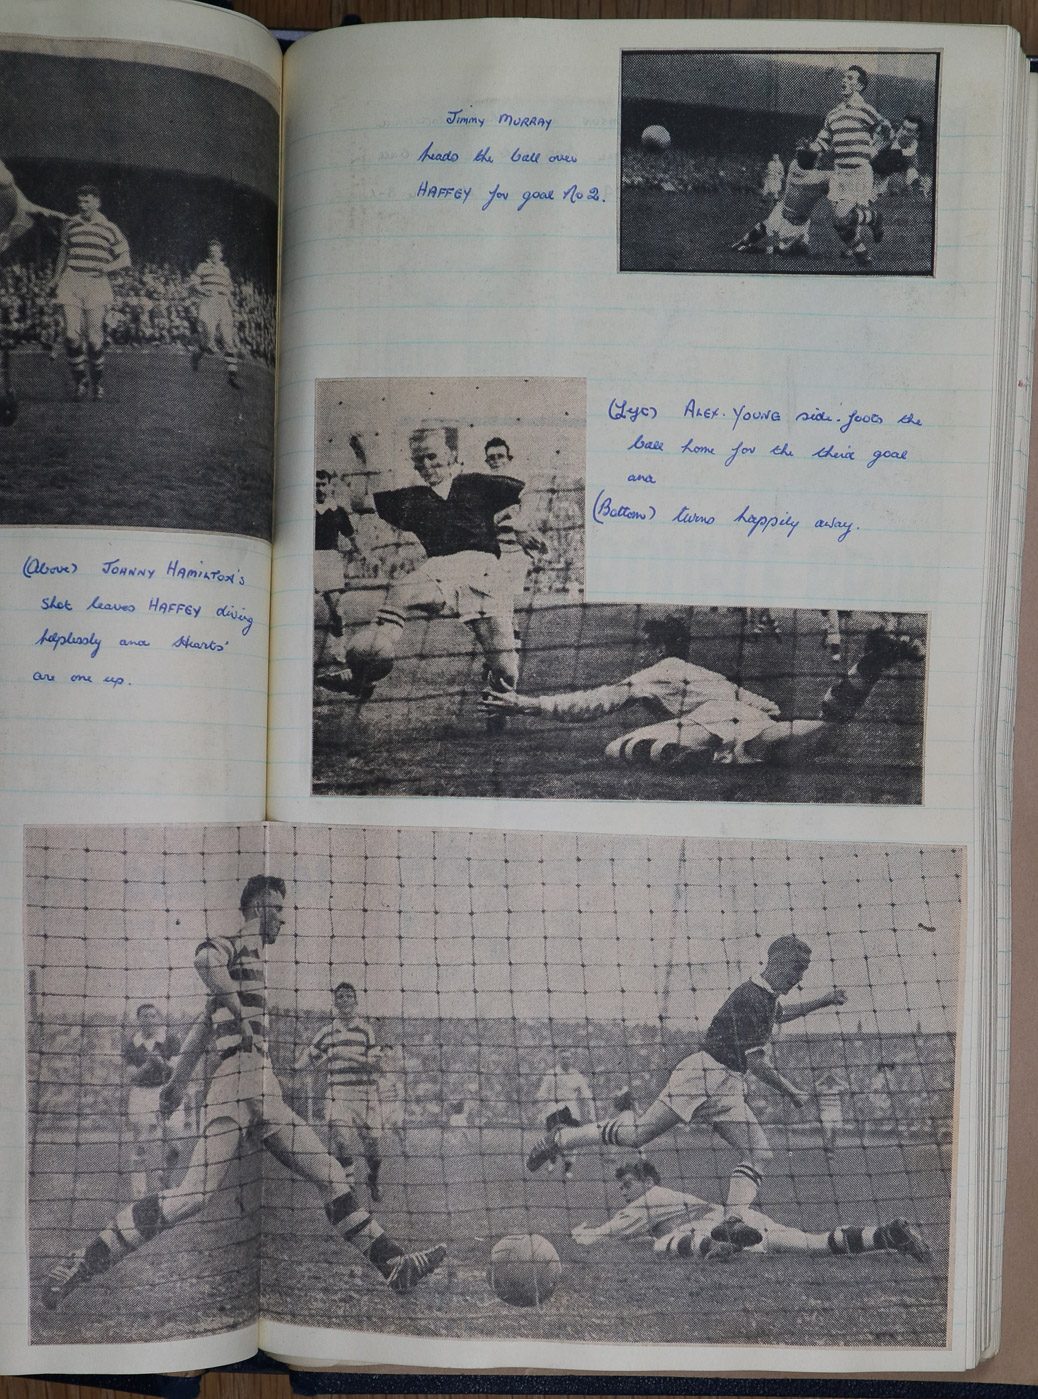 (Above) JOHNNY HAMILTON'S
shot leaves HAFFEY diving
helplessly and Hearts'
are one up.
Jimmy MURRAY
heads the ball over
HAFFEY for goal No 2.
(Left) ALEX. YOUNG side-foots the
ball home for the third goal
and
(Bottom) turns happily away.